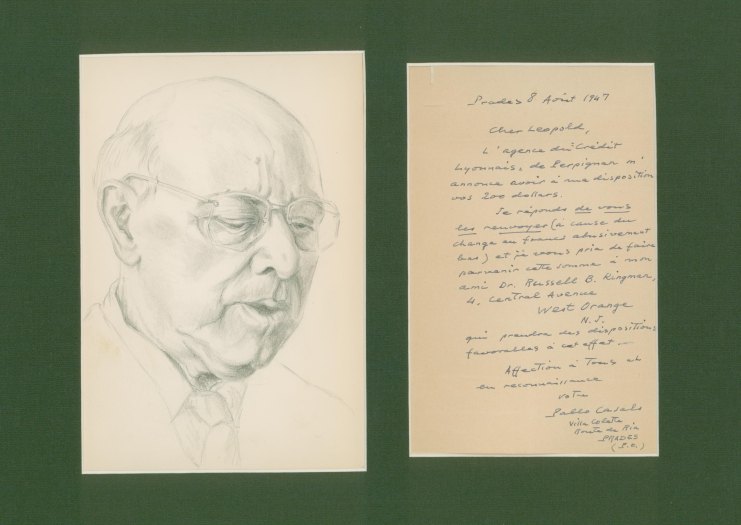 Prades 8 Août 1947
Cher Leopold,
L'agence du Crédit
Lyonnais, de Perpignan m'
annonce avoir à ma disposition
vos 200 dollars.
Je réponds de vous
les renvoyer (à cause du
change en francs abusivement
bas) et je vous prie de faire
parvenir cette somme à mon
ami Dr. Russell B. Kingman,
4. Central Avenue
West Orange
N.J.
qui prendra des dispositions
favorables à cet effet —
Affection à Tous et
en reconnaissance
votre
Pablo Casals
Villa Colette
Route de Ria
PRADES
(P.O.)